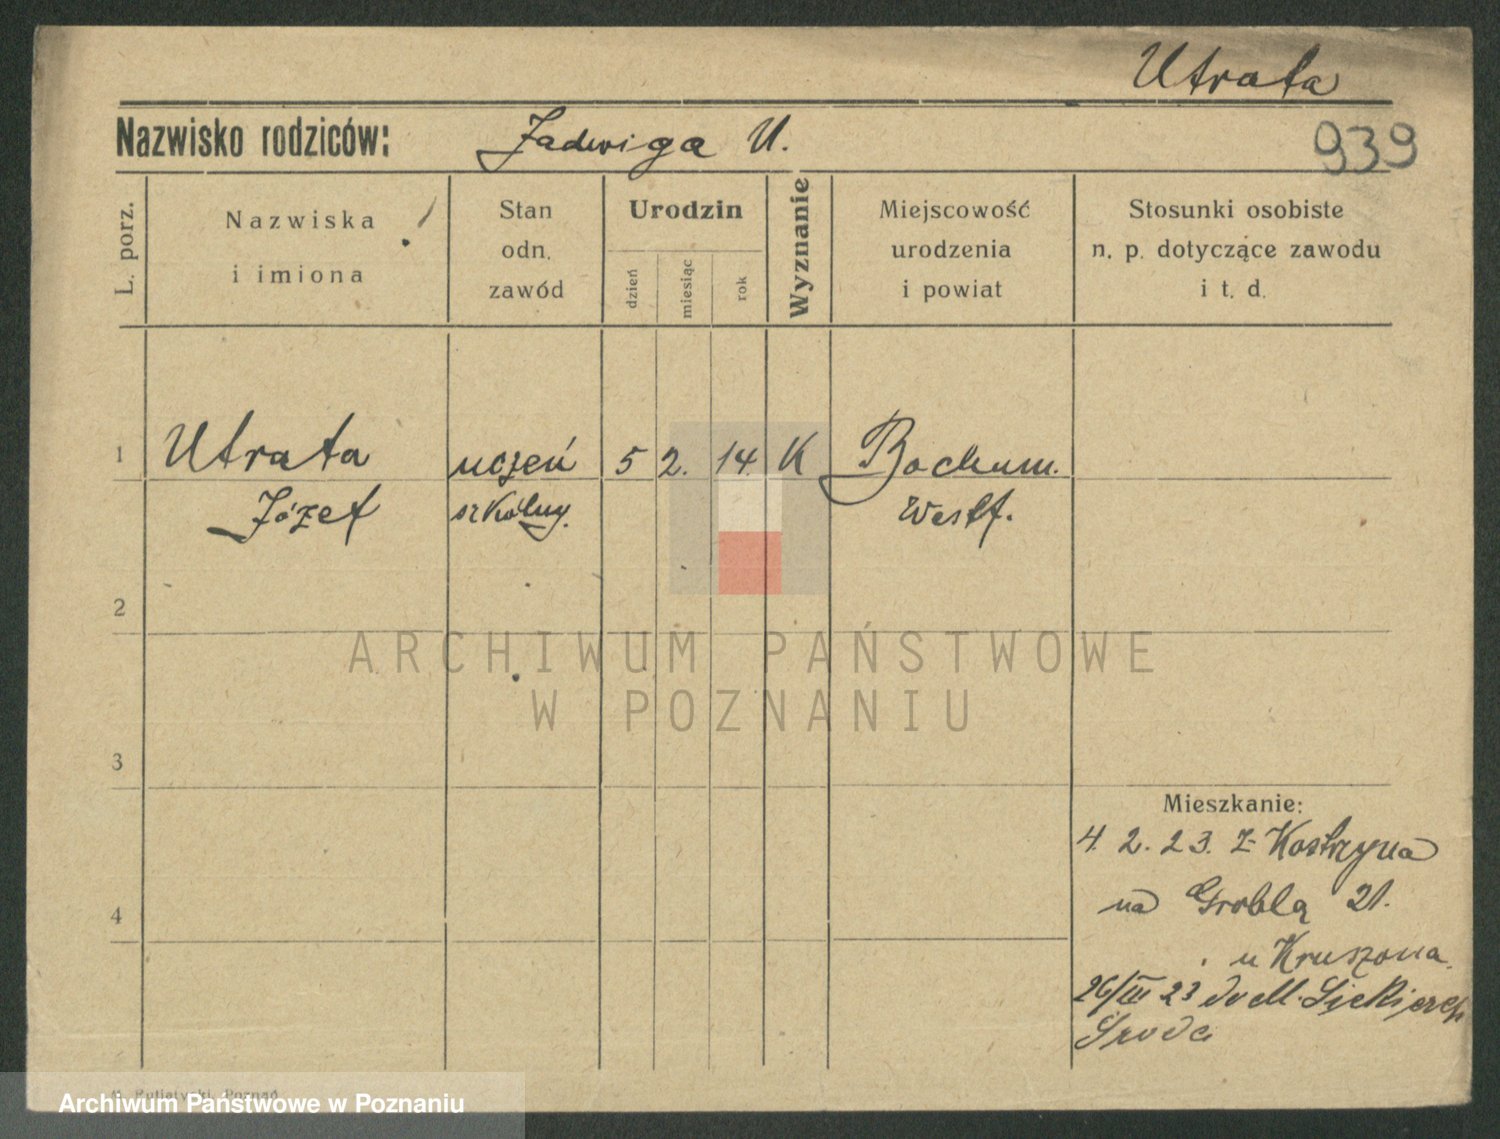 Utrata
Nazwisko rodziców: Jadwiga U.
939
L. porz.
Nazwiska
i imiona
Stan
odn.
zawód
Urodzin
dzień
miesiąc
rok
Wyznanie
Miejscowość
urodzenia
i powiat
Stosunki osobiste
n. p. dotyczące zawodu
i t. d.
1 Utrata uczeń 5 2. 14. K Bochum.
Józef szkólny. Westf.
2
3
4
Mieszkanie:
4. 2. 23. z Kostrzyna
na Groblą 21.
u Kruszona.
26/III 23 do M.
Środa
ARCHIWUM PAŃSTWOWE
W POZNANIU
Poznań
Archiwum Państwowe w Poznaniu